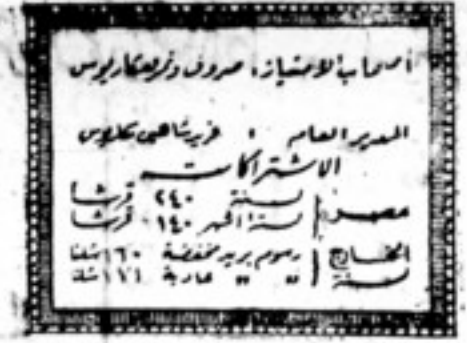 أصحاب الامتياز، صروف ونمر
المدير العام : فريد شاهين مكاريوس
الاشتراكات
مصر سنة ٢٤٠ قرشا
ستة أشهر ١٤٠ قرشا
الخارج رسوم بريد مخفضة ١٦٠
سنة " " عادية ١٧١